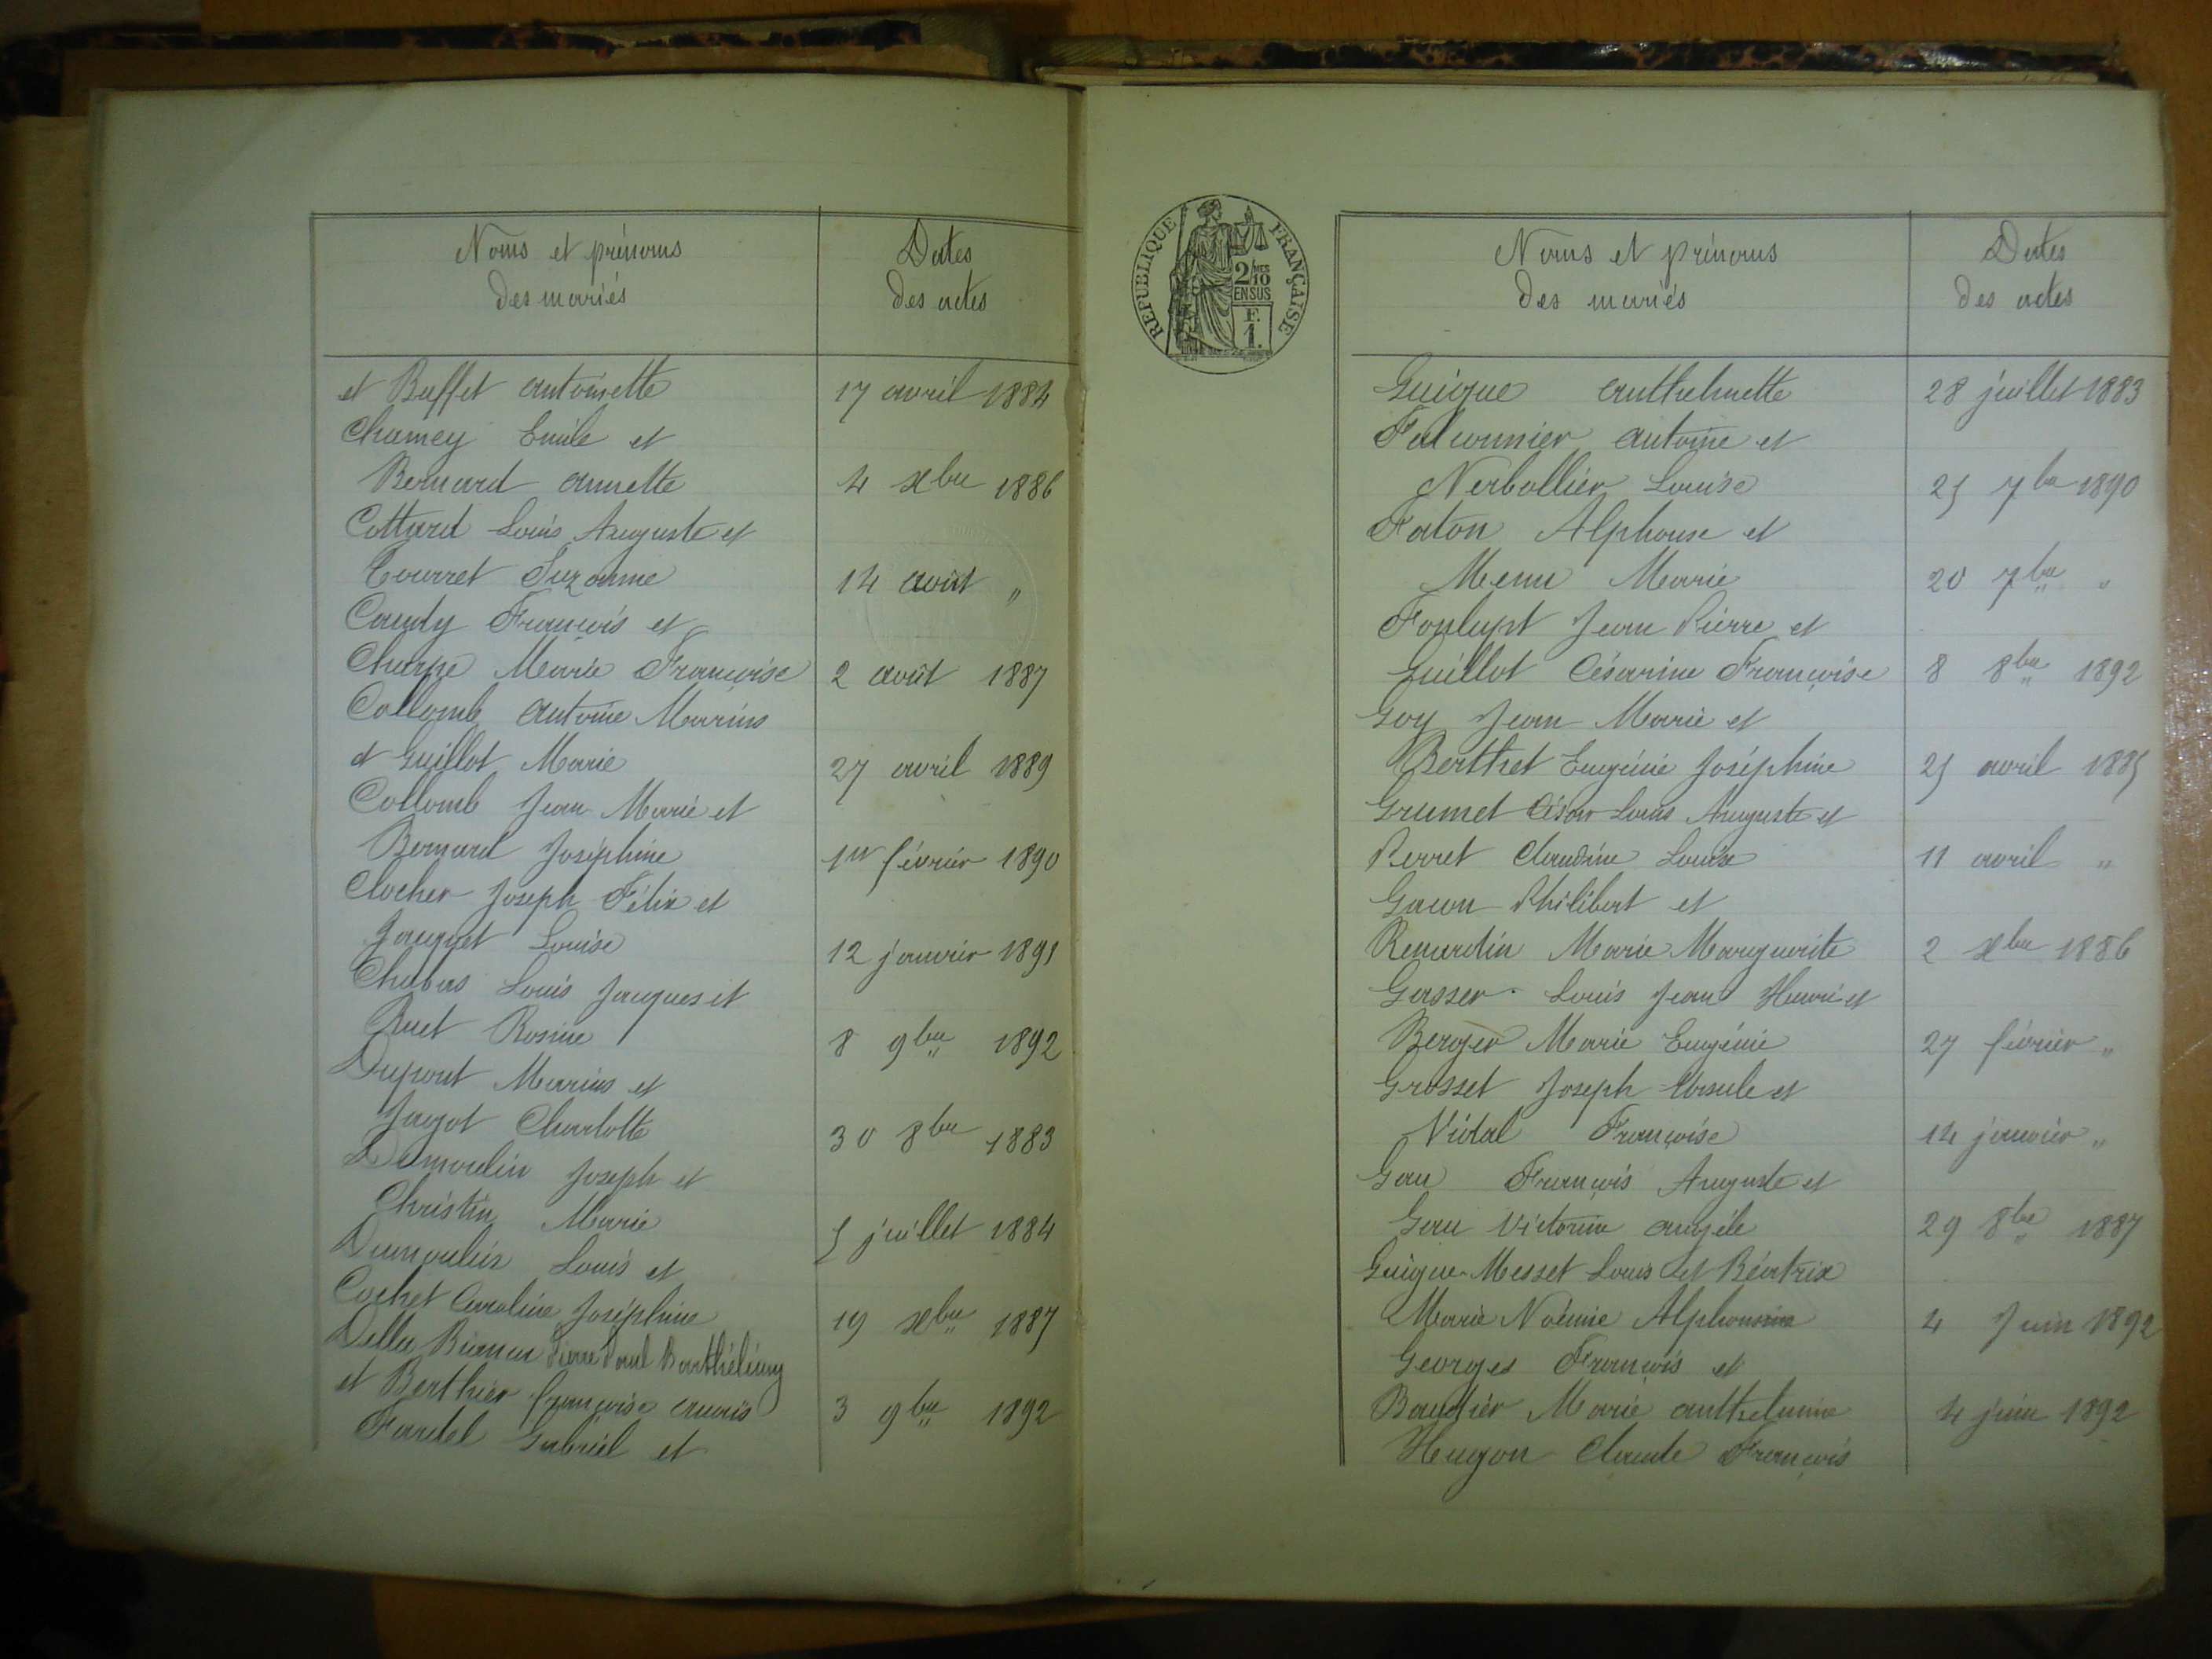 Noms et prénoms
des mariés
Dates
des actes
et Buffet antoinette 17 avril 1884
Chamey Emile et
Bernard annette 4 xbre 1886
Cottard Louis Auguste et
Tourret Suzanne 14 août "
Caudy François et
Charpe Marie Françoise 2 août 1887
Collomb antoine Marius
et Guillot Marie 27 avril 1889
Collomb Jean Marie et
Bernard Joséphine 1er février 1890
Clocher Joseph Félix et
Jauquet Louise 12 janvier 1891
Chabas Louis Jacques et
Ruet Rosine 8 9bre 1892
Dupont Marius et
Jagot Charlotte 30 8bre 1883
Dumoulin Joseph et
Christin Marie 5 juillet 1884
Dumoulin Louis et
Cochet Caroline Joséphine 19 xbre 1887
Della Bianca Pierre Paul Barthélémy
et Berthier françoise anaïs 3 9bre 1892
Fardel Gabriel et
REPUBLIQUE FRANÇAISE
2 MES
10
EN SUS
F.
1.
Noms et prénoms
des mariés
Dates
des actes
Guigue anthelmette 28 juillet 1883
Falconnier antoine et
Nerbollier Louise 25 7bre 1890
Faton Alphonse et
Menu Marie 20 7bre "
Fonlupt Jean Pierre et
Guillot Césarine Françoise 8 8bre 1892
Goy Jean Marie et
Berthet Eugénie Joséphine 25 avril 1885
Grumet César Louis Auguste et
Perret Claudine Louise 11 avril "
Gacon Philibert et
Renardin Marie Marguerite 2 xbre 1886
Gasser Louis Jean Henri et
Berger Marie Eugénie 27 février "
Grosset Joseph Ursule et
Vidal Françoise 14 janvier "
Gau François Auguste et
Gau Victorine angèle 29 8bre 1887
Guigue-Messet Louis et Béatrix
Marie Noémie Alphonsine 4 Juin 1892
Georges François et
Baudier Marie anthelmine 4 juin 1892
Hugon Claude François